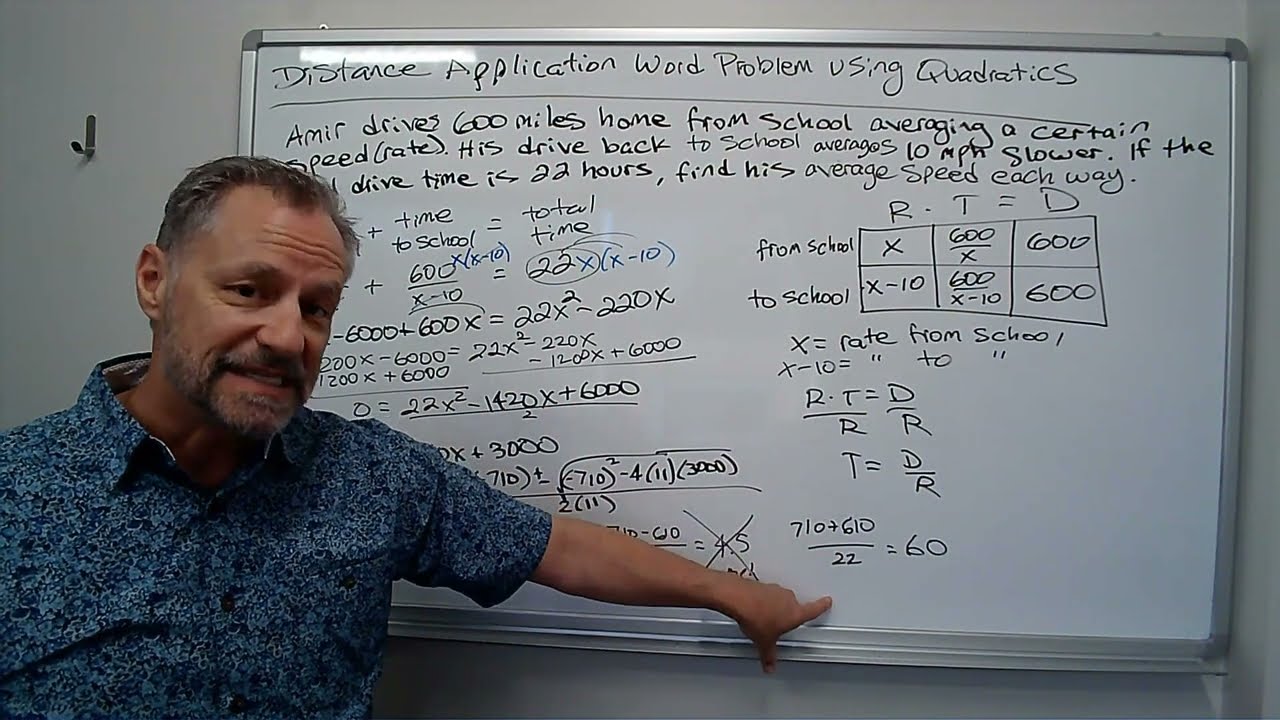 Distance Application Word Problem using Quadratics
Amir drives 600 miles home from school averaging a certain
speed (rate). His drive back to school averages 10 mph slower. If the
drive time is 22 hours, find his average speed each way.
+ time to school = total time
+ 600/(x-10) x(x-10) = 22x(x-10)
-6000+600x = 22x²-220x
1200x-6000 = 22x²-220x
1200x+6000 -1200x+6000
0 = 22x²-1420x+6000
2
0x+3000
710)± √(-710)²-4(11)(3000)
2(11)
710-610 = 4.5
R · T = D
from school x 600/x 600
to school x-10 600/(x-10) 600
x = rate from school
x-10 = " to "
R·T = D
R R
T = D/R
710+610
22 = 60